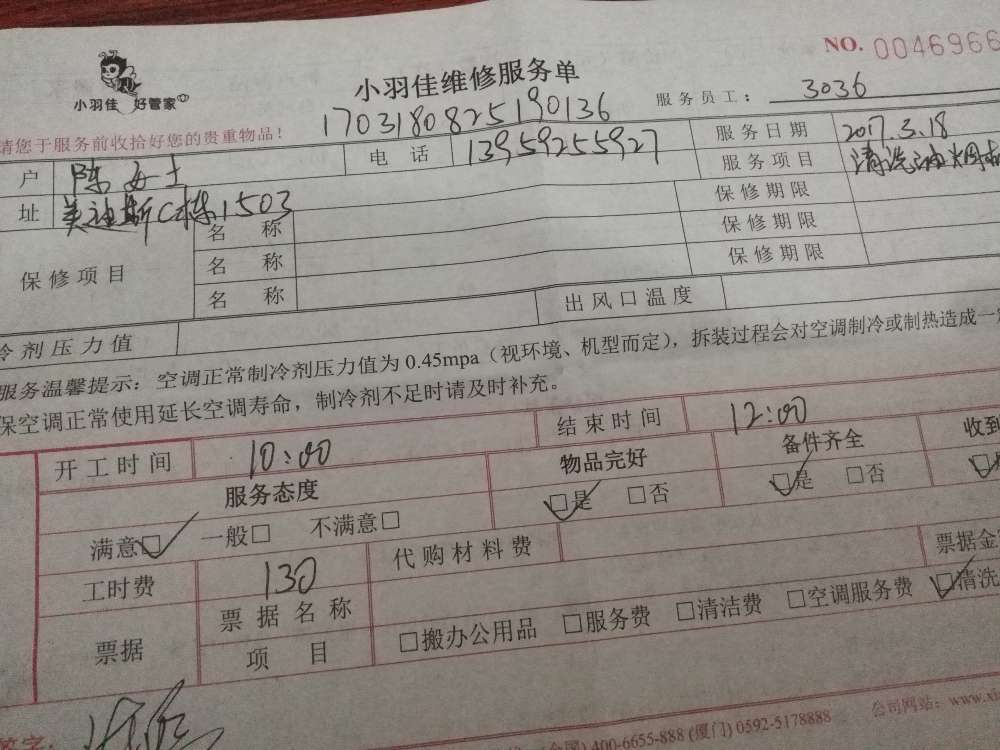 NO. 0046966
小羽佳 好管家
小羽佳维修服务单
170318082519 0136
服务员工: 3036
请您于服务前收拾好您的贵重物品!
户 陈女士 电话 13959255927 服务日期 2017.3.18
址 美迪斯C栋1503 服务项目 清洗油烟机
保修项目 名称 保修期限
名称 保修期限
名称 保修期限
冷剂压力值 出风口温度
服务温馨提示:空调正常制冷剂压力值为0.45mpa(视环境、机型而定),拆装过程会对空调制冷或制热造成一定
保空调正常使用延长空调寿命,制冷剂不足时请及时补充。
开工时间 10:00 结束时间 12:00
服务态度 物品完好 备件齐全 收到
满意□ 一般□ 不满意□ □是 □否 □是 □否
工时费 130 代购材料费 票据金
票据 票据名称
项目 □搬办公用品 □服务费 □清洁费 □空调服务费 □清洗
签字:
400-6655-888 (厦门) 0592-5178888 公司网站:www.xi